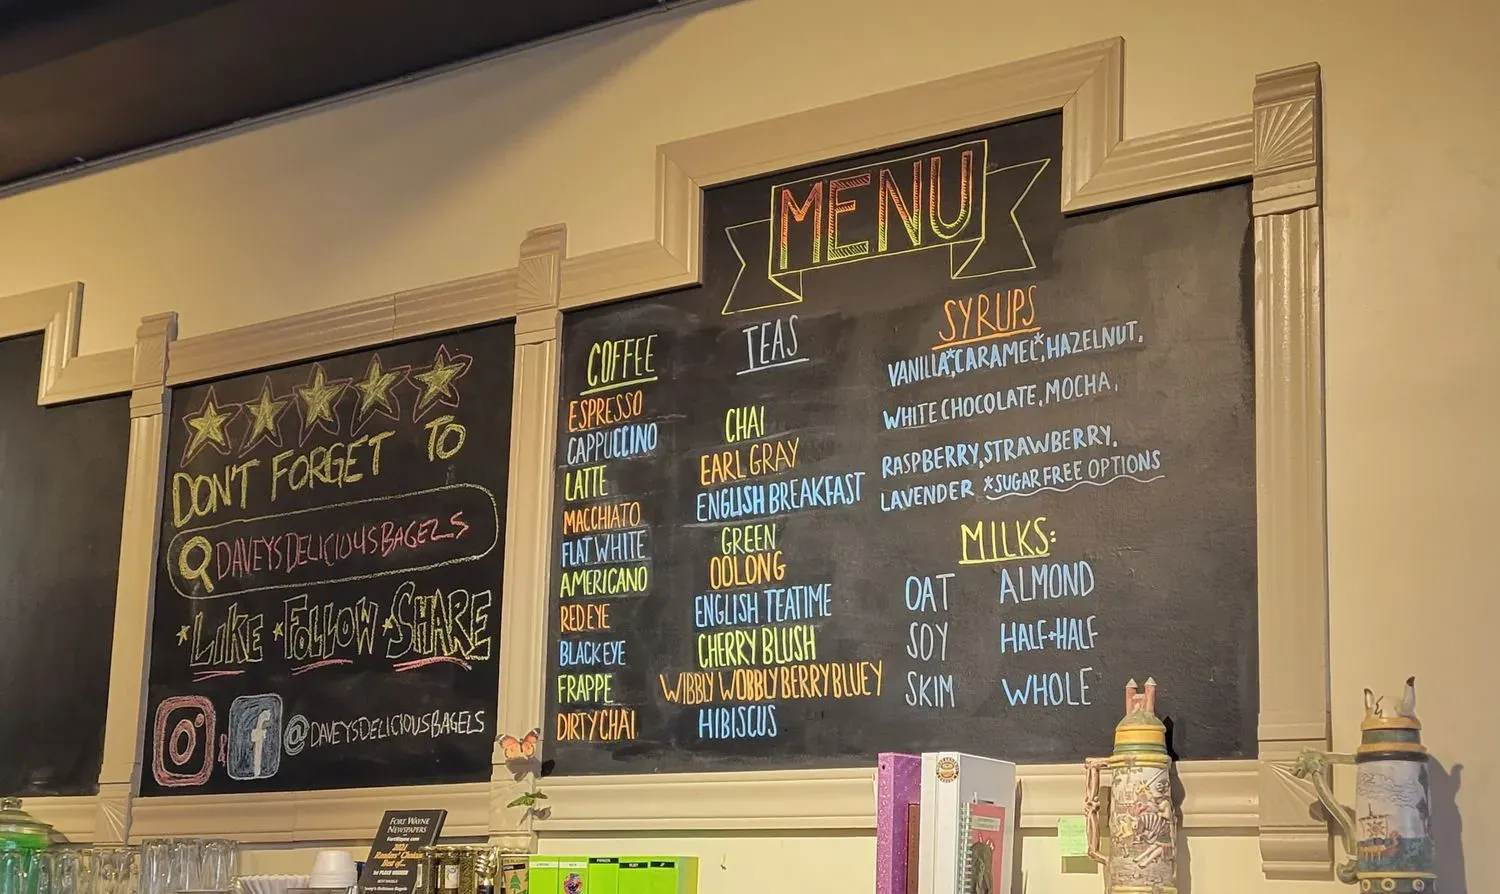 DON'T FORGET TO
DAVEYSDELICIOUSBAGELS
*LIKE *FOLLOW *SHARE
& f @DAVEYSDELICIOUSBAGELS
MENU
COFFEE
ESPRESSO
CAPPUCCINO
LATTE
MACCHIATO
FLAT WHITE
AMERICANO
RED EYE
BLACK EYE
FRAPPE
DIRTY CHAI
TEAS
CHAI
EARL GRAY
ENGLISH BREAKFAST
GREEN
OOLONG
ENGLISH TEATIME
CHERRY BLUSH
WIBBLY WOBBLY BERRY BLUEY
HIBISCUS
SYRUPS
VANILLA*,CARAMEL*,HAZELNUT,
WHITE CHOCOLATE, MOCHA,
RASPBERRY, STRAWBERRY,
LAVENDER *SUGAR FREE OPTIONS
MILKS:
OAT ALMOND
SOY HALF+HALF
SKIM WHOLE
FORT WAYNE
NEWSPAPERS
2021
Readers' Choice
Best of...
1st PLACE WINNER
Davey's Delicious Bagels